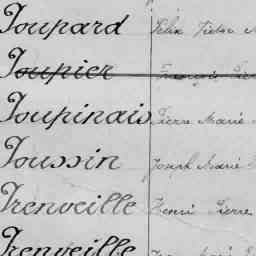 Toupard Félix Victor
Toupier François Pie
Toupinais Pierre Marie
Toussin Joseph Marie
Trenveille Henri Pierre
Trenveille